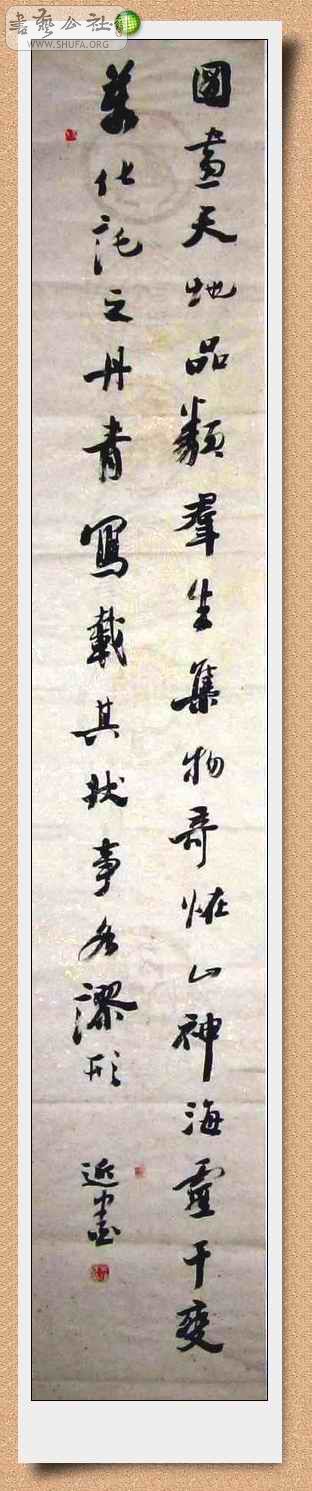 書藝公社
WWW.SHUFA.ORG
圖畫天地品類羣生集物奇恠山神海靈千變
萬化託之丹青寫載其狀事各謬形
近中書